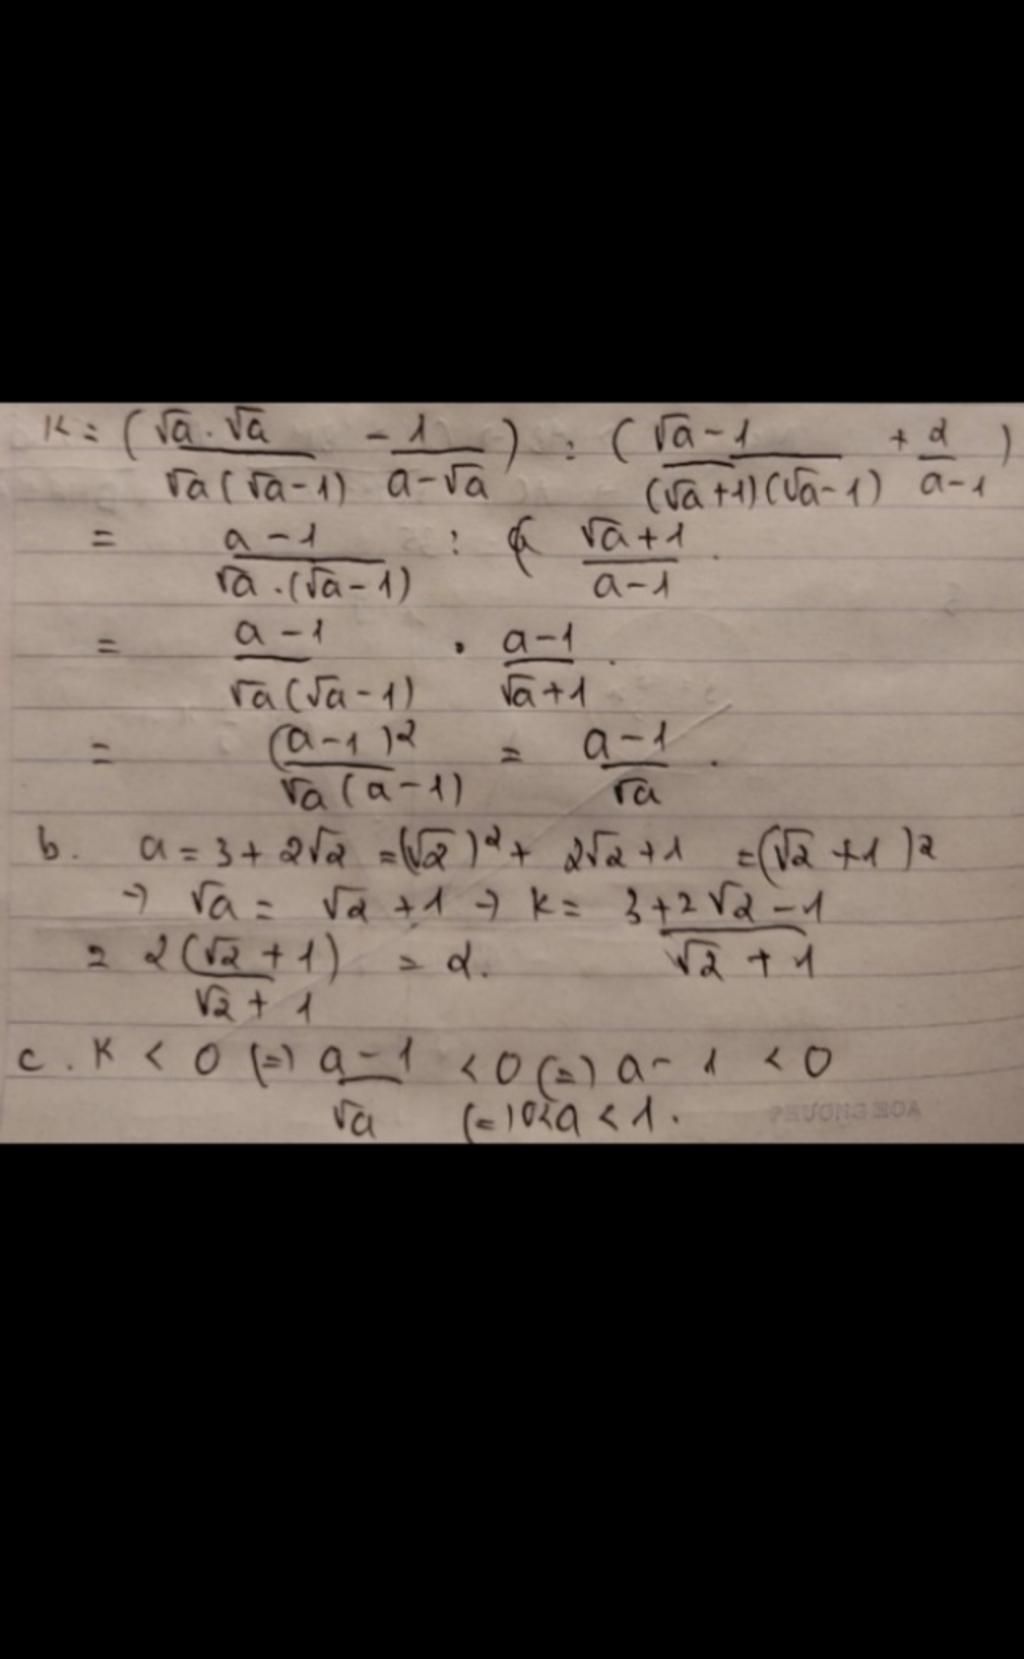 K = ( √a . √a / √a ( √a - 1) - 1 / a - √a ) : ( √a - 1 / (√a + 1) (√a - 1) + 2 / a - 1 )
= a - 1 / √a . (√a - 1) : ( √a + 1 / a - 1 .
= a - 1 / √a (√a - 1) . a - 1 / √a + 1 .
= (a - 1)² / √a (a - 1) = a - 1 / √a .
b. a = 3 + 2√2 = (√2)² + 2√2 + 1 = (√2 + 1)²
→ √a = √2 + 1 → K = 3 + 2√2 - 1 / √2 + 1
= 2 (√2 + 1) / √2 + 1 = 2.
c. K < 0 (=) a - 1 / √a < 0 (=) a - 1 < 0
(=) 0 < a < 1.
PHUONG HOA